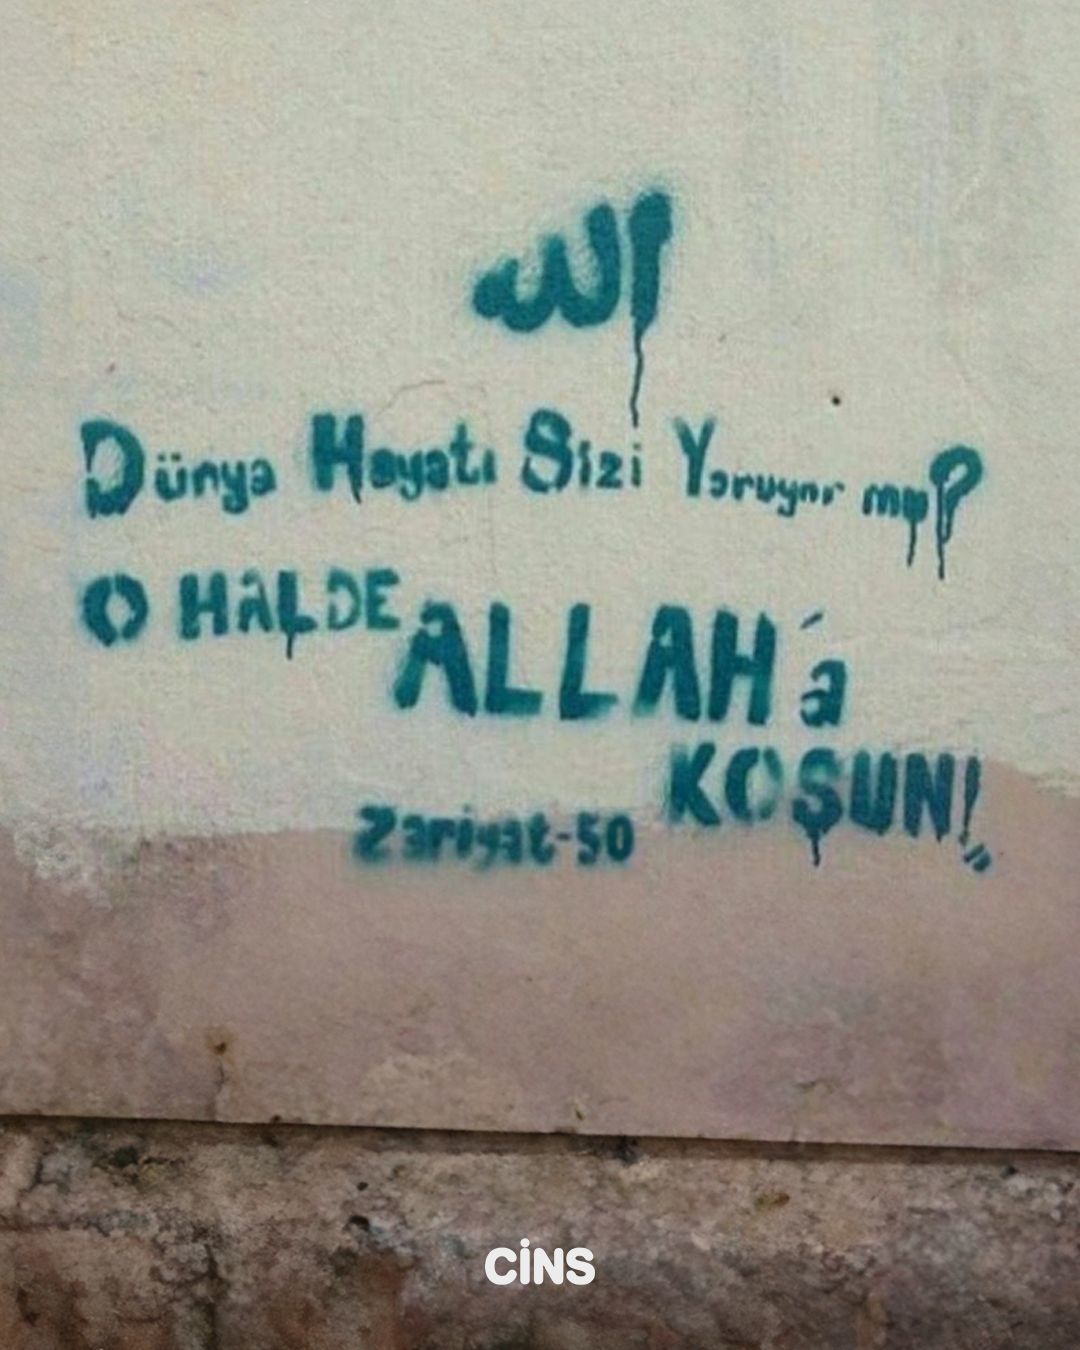 الله
Dünya Hayatı Sizi Yoruyor mu?
O HALDE ALLAH'a
KOŞUN!
Zariyat-50
CİNS